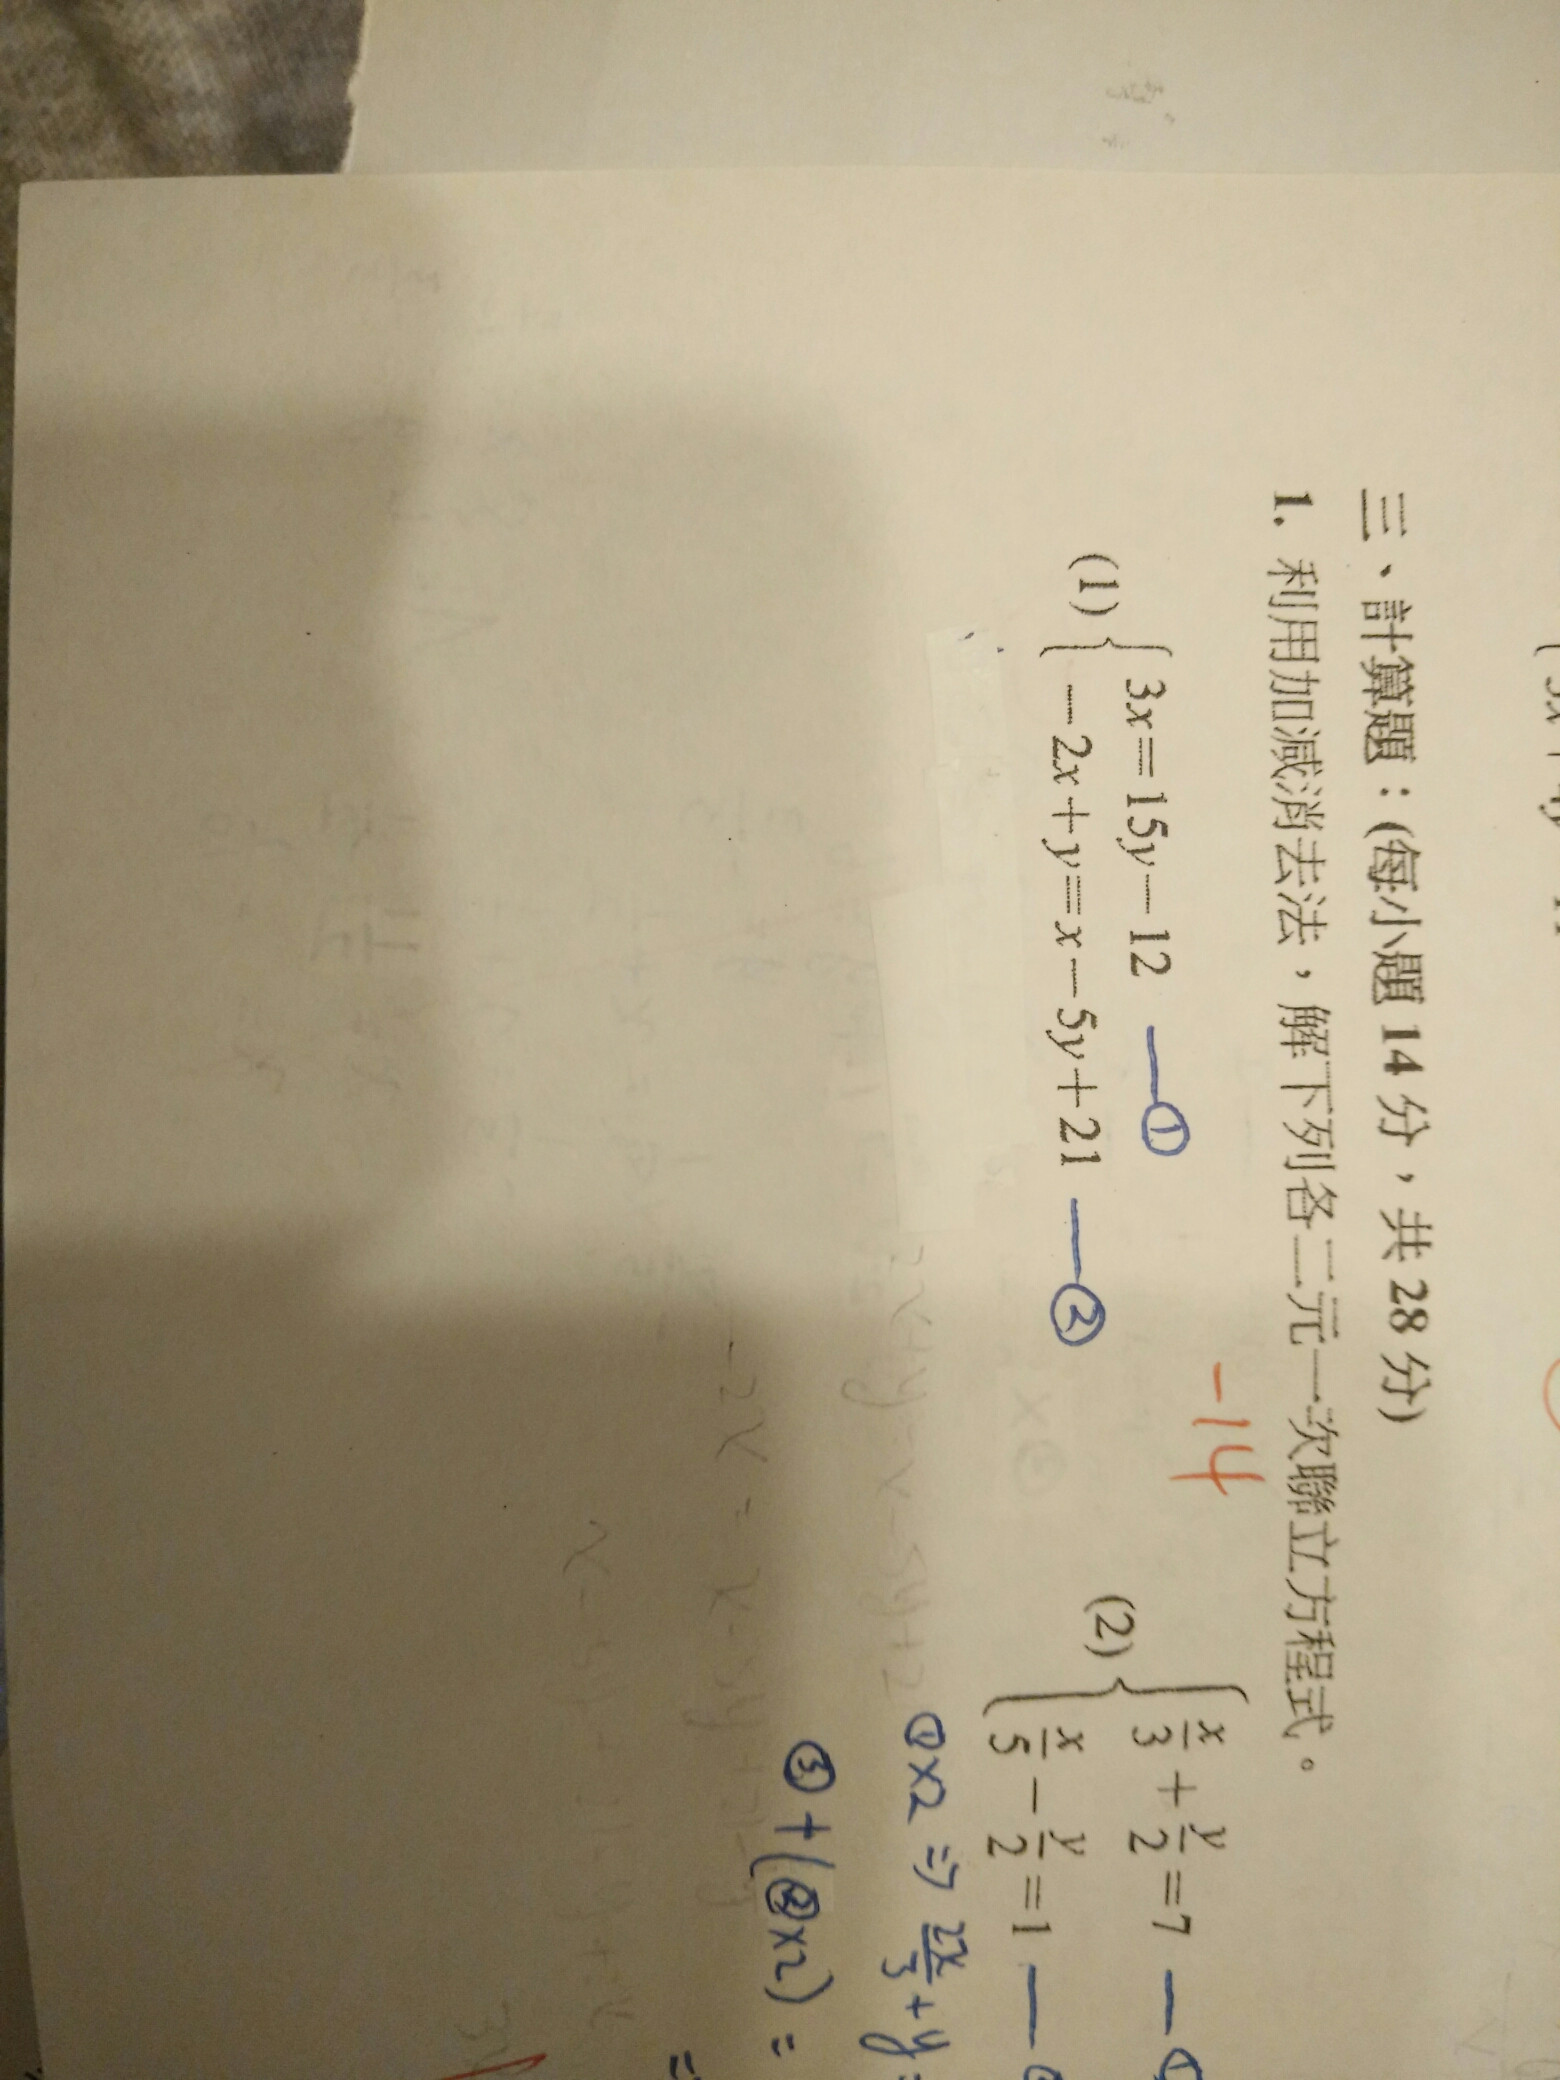 三、計算題：(每小題 14 分，共 28 分)
1. 利用加減消去法，解下列各二元一次聯立方程式。
-14
(1) { 3x=15y-12 —①
-2x+y=x-5y+21 —②
(2) { x/3 + y/2 =7 —
x/5 - y/2 =1 —
①×2 => 2x/3 + y
③+(②×2) =
=